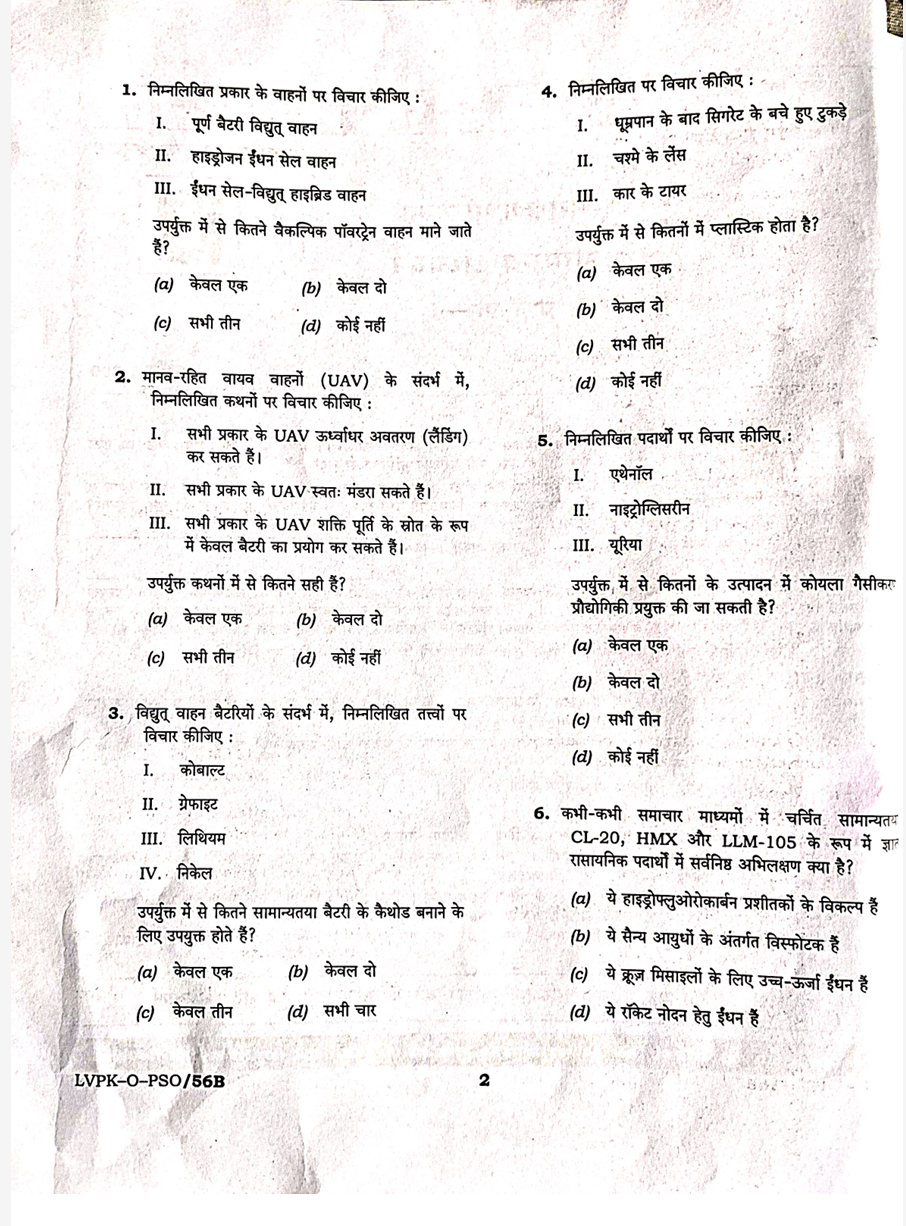 1. निम्नलिखित प्रकार के वाहनों पर विचार कीजिए :
I. पूर्ण बैटरी विद्युत् वाहन
II. हाइड्रोजन ईंधन सेल वाहन
III. ईंधन सेल-विद्युत् हाइब्रिड वाहन
उपर्युक्त में से कितने वैकल्पिक पॉवरट्रेन वाहन माने जाते
हैं?
(a) केवल एक (b) केवल दो
(c) सभी तीन (d) कोई नहीं
2. मानव-रहित वायव वाहनों (UAV) के संदर्भ में,
निम्नलिखित कथनों पर विचार कीजिए :
I. सभी प्रकार के UAV ऊर्ध्वाधर अवतरण (लैंडिंग)
कर सकते हैं।
II. सभी प्रकार के UAV स्वतः मंडरा सकते हैं।
III. सभी प्रकार के UAV शक्ति पूर्ति के स्रोत के रूप
में केवल बैटरी का प्रयोग कर सकते हैं।
उपर्युक्त कथनों में से कितने सही हैं?
(a) केवल एक (b) केवल दो
(c) सभी तीन (d) कोई नहीं
3. विद्युत् वाहन बैटरियों के संदर्भ में, निम्नलिखित तत्त्वों पर
विचार कीजिए :
I. कोबाल्ट
II. ग्रेफाइट
III. लिथियम
IV. निकेल
उपर्युक्त में से कितने सामान्यतया बैटरी के कैथोड बनाने के
लिए उपयुक्त होते हैं?
(a) केवल एक (b) केवल दो
(c) केवल तीन (d) सभी चार
4. निम्नलिखित पर विचार कीजिए :
I. धूम्रपान के बाद सिगरेट के बचे हुए टुकड़े
II. चश्मे के लेंस
III. कार के टायर
उपर्युक्त में से कितनों में प्लास्टिक होता है?
(a) केवल एक
(b) केवल दो
(c) सभी तीन
(d) कोई नहीं
5. निम्नलिखित पदार्थों पर विचार कीजिए :
I. एथेनॉल
II. नाइट्रोग्लिसरीन
III. यूरिया
उपर्युक्त में से कितनों के उत्पादन में कोयला
प्रौद्योगिकी प्रयुक्त की जा सकती है?
(a) केवल एक
(b) केवल दो
(c) सभी तीन
(d) कोई नहीं
6. कभी-कभी समाचार माध्यमों में चर्चित
CL-20, HMX और LLM-105 के रूप में
रासायनिक पदार्थों में सर्वनिष्ठ अभिलक्षण क्या है?
(a) ये हाइड्रोफ्लुओरोकार्बन प्रशीतकों के विकल्प हैं
(b) ये सैन्य आयुधों के अंतर्गत विस्फोटक हैं
(c) ये क्रूज़ मिसाइलों के लिए उच्च-ऊर्जा ईंधन हैं
(d) ये रॉकेट नोदन हेतु ईंधन हैं
LVPK-O-PSO/56B 2